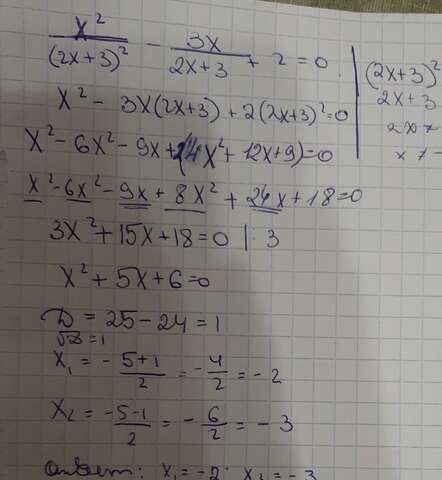 x²/(2x+3)² - 3x/(2x+3) + 2 = 0
(2x+3)²
2x+3
x² - 3x(2x+3) + 2(2x+3)² = 0
x² - 6x² - 9x + 2(4x² + 12x + 9) = 0
x² - 6x² - 9x + 8x² + 24x + 18 = 0
3x² + 15x + 18 = 0 |: 3
x² + 5x + 6 = 0
D = 25 - 24 = 1
√D = 1
x₁ = -5+1/2 = -4/2 = -2
x₂ = -5-1/2 = -6/2 = -3
ответ: x₁ = -2; x₂ = -3